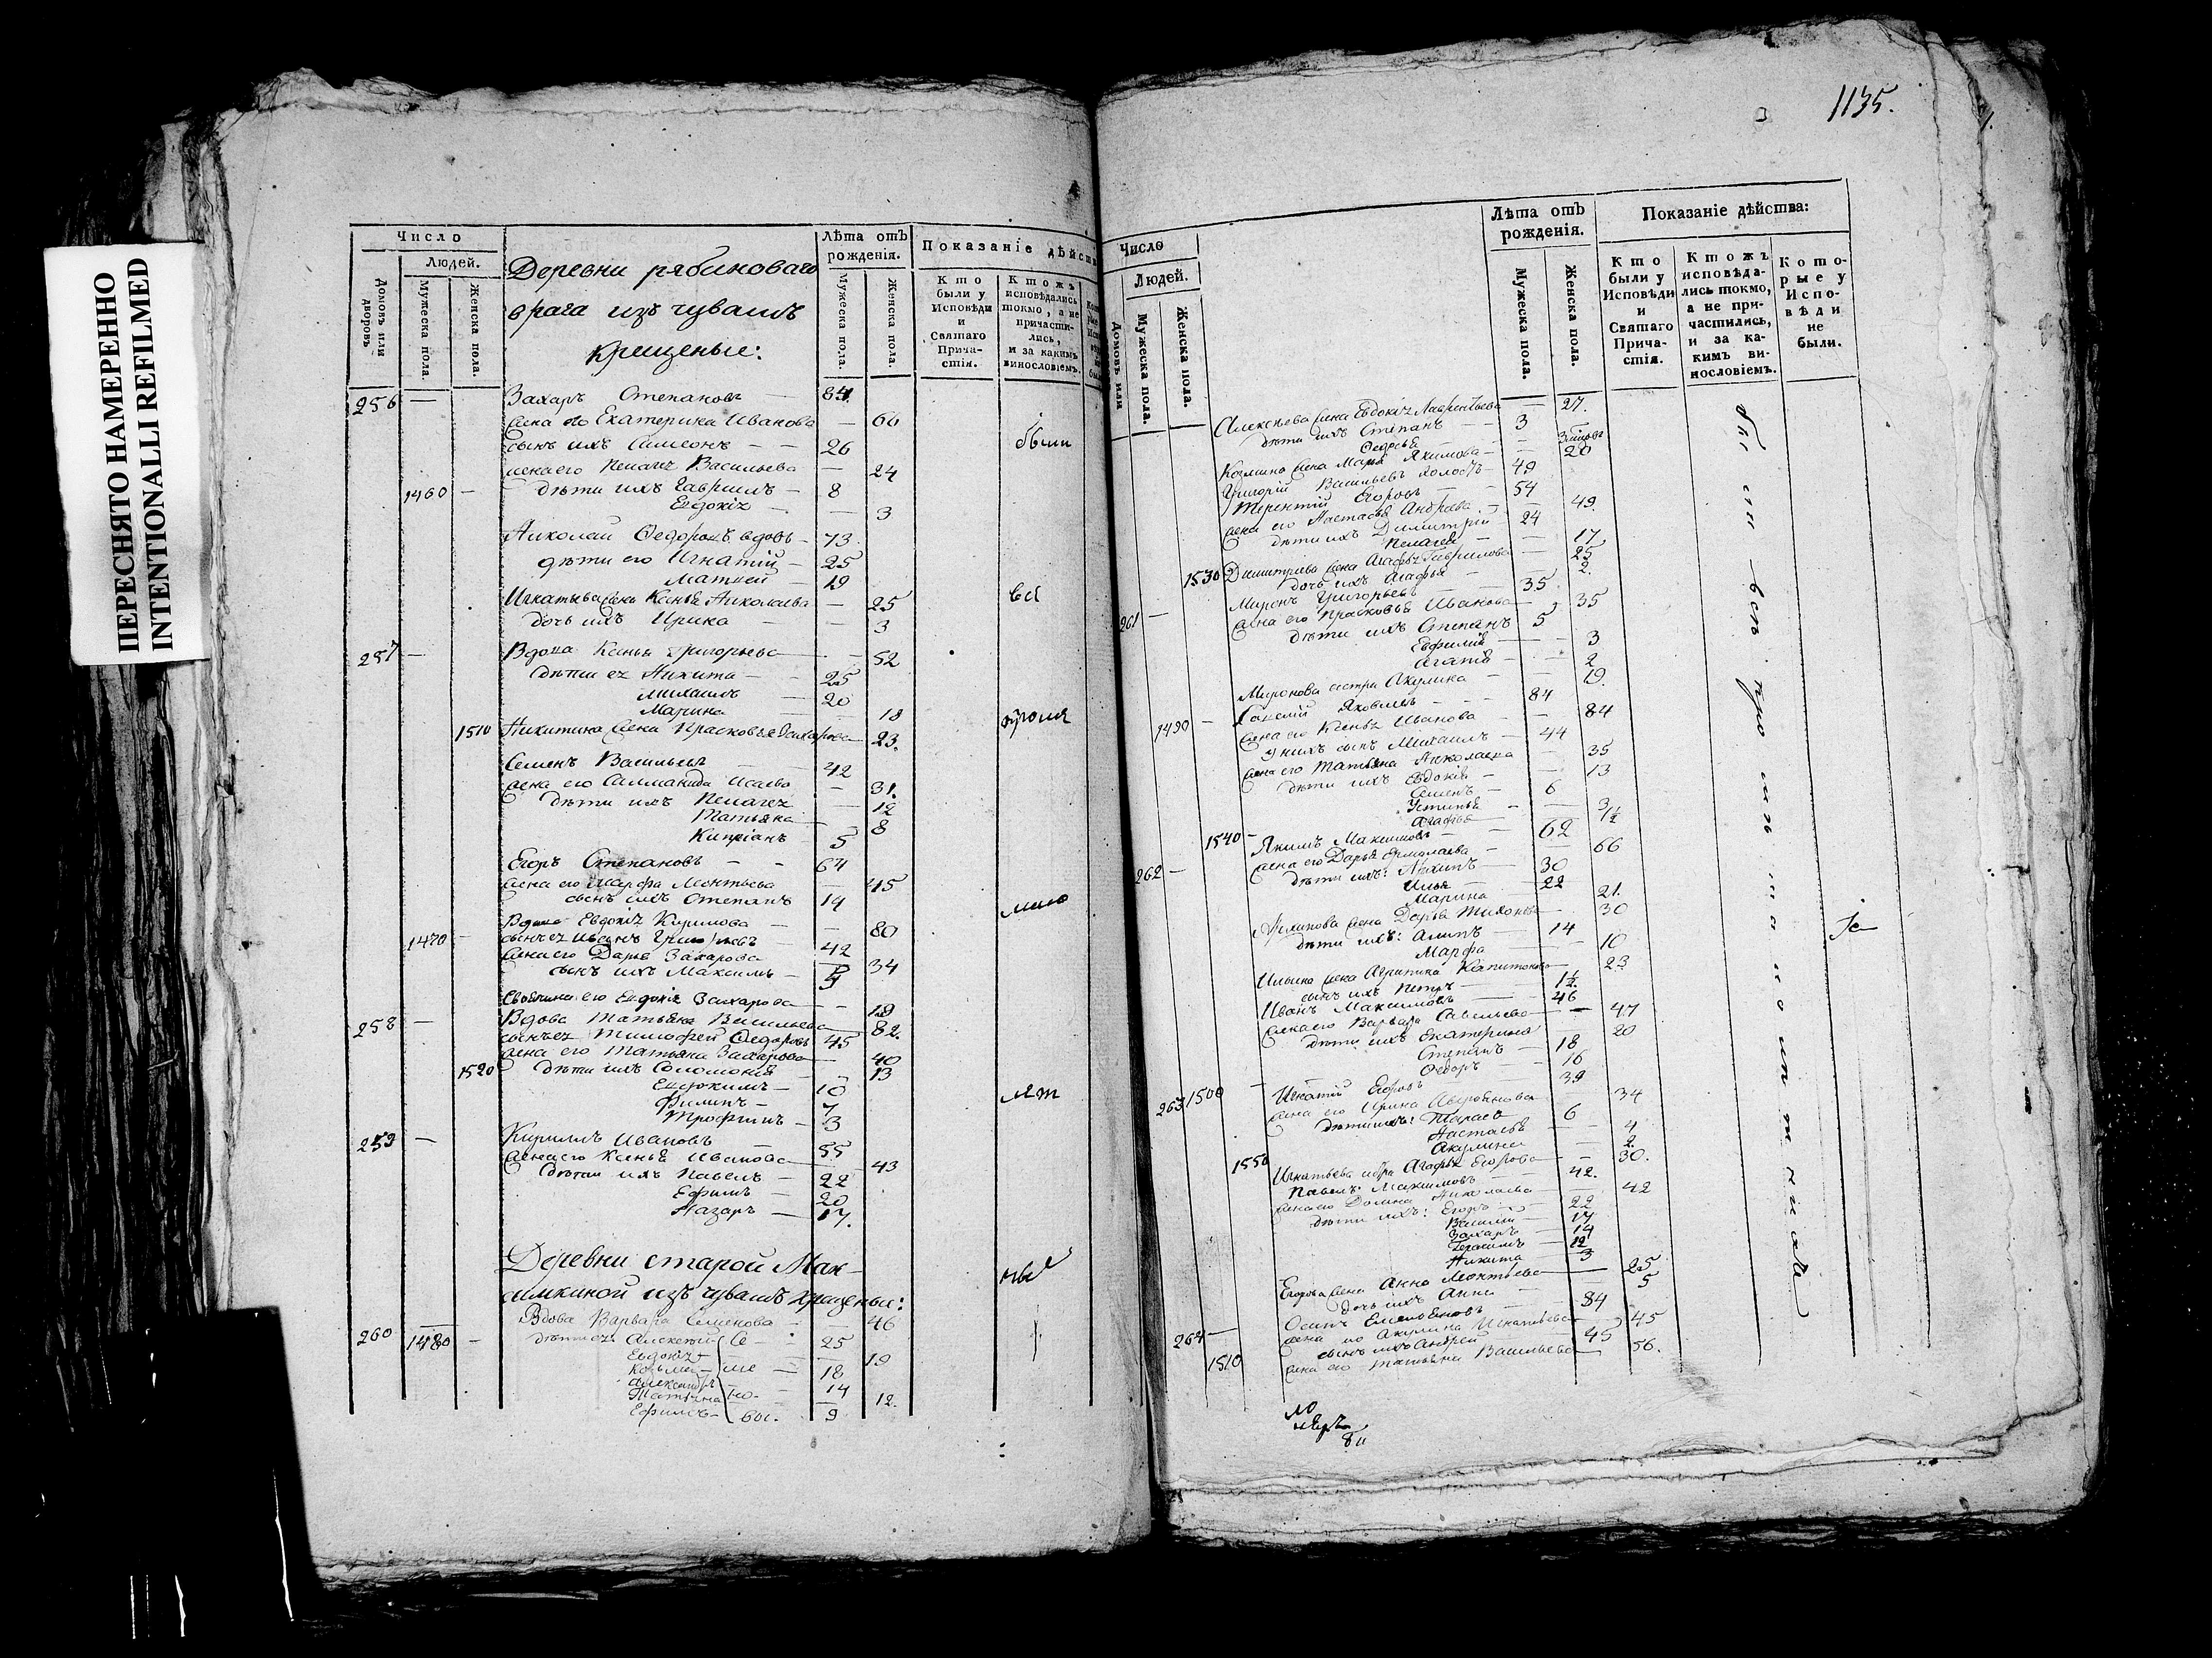 ПЕРЕСНЯТО НАМЕРЕННО
INTENTIONALLI REFILMED
1135.
Число
Людей.
Домовъ или дворовъ
Мужеска пола.
Женска пола.
Деревни рябиноваго
врага изъ чувашъ
крещеные:
Лѣта отъ рожденія.
Мужеска пола.
Женска пола.
Показаніе дѣйств
Кто были у Исповѣди и Святаго Причастія.
Ктожъ исповѣдались токмо, а не причастились, и за какимъ винословіемъ.
256 — Захаръ Степановъ — 84
жена его Екатерина Иванова — 60
сынъ ихъ Симеонъ — — 26 были
жена его Пелагея Васильева — 24
1460 — дѣти ихъ Гавриилъ — 8
Евдокія — — 3
Николай Федоровъ вдовъ — 73
дѣти его Игнатій — 25
Матвей — 19
Игнатьева жена Ксенья Николаева — 25 всѣ
дочь ихъ Ирина — — 3
257 — Вдова Ксенья Григорьева — 52
дѣти ея Никита — — 25
Михаилъ — 20
Марина — 18
1510 Никитина жена Прасковья Захарова — 23.
Семенъ Васильевъ — — 42
жена его Саломанида Исаева — 31.
дѣти ихъ Пелагея — 12
Татьяна — 8
Кипріанъ 5
Егоръ Степановъ — — 64
жена его Марфа Леонтьева — 45
сынъ ихъ Степанъ 14
Вдова Евдокія Кирилова — — 80
1470 — сынъ ея Иванъ 42
жена его Дарья Захарова 34
сынъ ихъ Максимъ —
своячина его Евдокія Захарова — 19
258 — Вдова Татьяна Васильева — 82.
сынъ ея Тимофей Федоровъ 45
жена его Татьяна Захарова — 40
1520 дѣти ихъ Соломонія — 13
Евдокимъ — 10
Филипъ — 7
Трофимъ — 3
259 — Кирилъ Ивановъ — 55
жена его Ксенья Иванова — 43
дѣти ихъ Павелъ — 22
Ефимъ — 20
Назаръ — 17.
Деревни старой Мак-
симкиной изъ чувашъ крещеные:
Вдова Варвара Семенова — — 46
260 1480 — дѣти ея Алексей — 25
Евдокія — 19
Козьма — 18
Александръ — 14
Татьяна — 12.
Ефимъ — 9
Число
Людей.
Домовъ или
Мужеска пола.
Женска пола.
Лѣта отъ рожденія.
Мужеска пола.
Женска пола.
Показаніе дѣйства:
Кто были у Исповѣди и Святаго Причастія.
Ктожъ исповѣдались токмо, а не причастились, и за какимъ винословіемъ.
Которые у Исповѣди не были.
Алексеева жена Евдокія Лаврентьева — 27.
дѣти ихъ Степанъ — — 3
Федосья —
Козмина жена Марья Якимова — 20
Григорій Васильевъ холостъ — 49
Терентій Егоровъ — 54
жена его Настасья Андреева — 49.
дѣти ихъ Димитрій 24
Пелагея — — 17
1530 Димитріева жена Агафья Гаврилова — 25
дочь ихъ Агафья — 2.
261 — Миронъ Григорьевъ — 35
жена его Прасковья Иванова — 35
дѣти ихъ Степанъ 5
Ефимія — — 3
Агафія — — 2
Миронова сестра Акулина — — 19.
1490 — Яковлевъ — 84
жена его Ксенья Иванова — — 84
у нихъ сынъ Михаилъ — 44
жена его Татьяна Николаева — 35
дѣти ихъ Евдокія — — 13
Семенъ — 6
Устинья — — 3
1540 — Агафья — 1/2
262 — Якимъ Максимовъ — — 62
жена его Дарья Ермолаева — — 66
дѣти ихъ: Архипъ — 30
Илья — — 22
Марина — 21.
Архипова жена Дарья Тихонова — 30
дѣти ихъ: 14
Марфа — — 10
Ильина жена Агрипина Капитонова — 23
сынъ ихъ Петръ — 1 1/2
Иванъ Максимовъ — 46
жена его Варвара Савельева — — 47
дѣти ихъ Екатерина 20
Степанъ — 18
Федоръ — 16
263 1500 — Игнатій Егоровъ — 39
жена его Ирина Аверьянова — 34
дѣти ихъ: Тарасъ — 6
Настасья — 4
Акулина — 2.
1550 Игнатьева сестра Агафья Егорова — 30.
Павелъ Максимовъ — 42.
жена его Домна Николаева — 42
дѣти ихъ: Егоръ — 22
Василій — 17
Захаръ — 14
Герасимъ — 12
Никита — 3
Егорова жена Анна Леонтьева — 25
дочь ихъ Анна — 5
264 — Осипъ — 84
жена его Акулина Игнатьева — 45
сынъ ихъ Андрей — 45
1510 жена его Татьяна Васильева — 56.